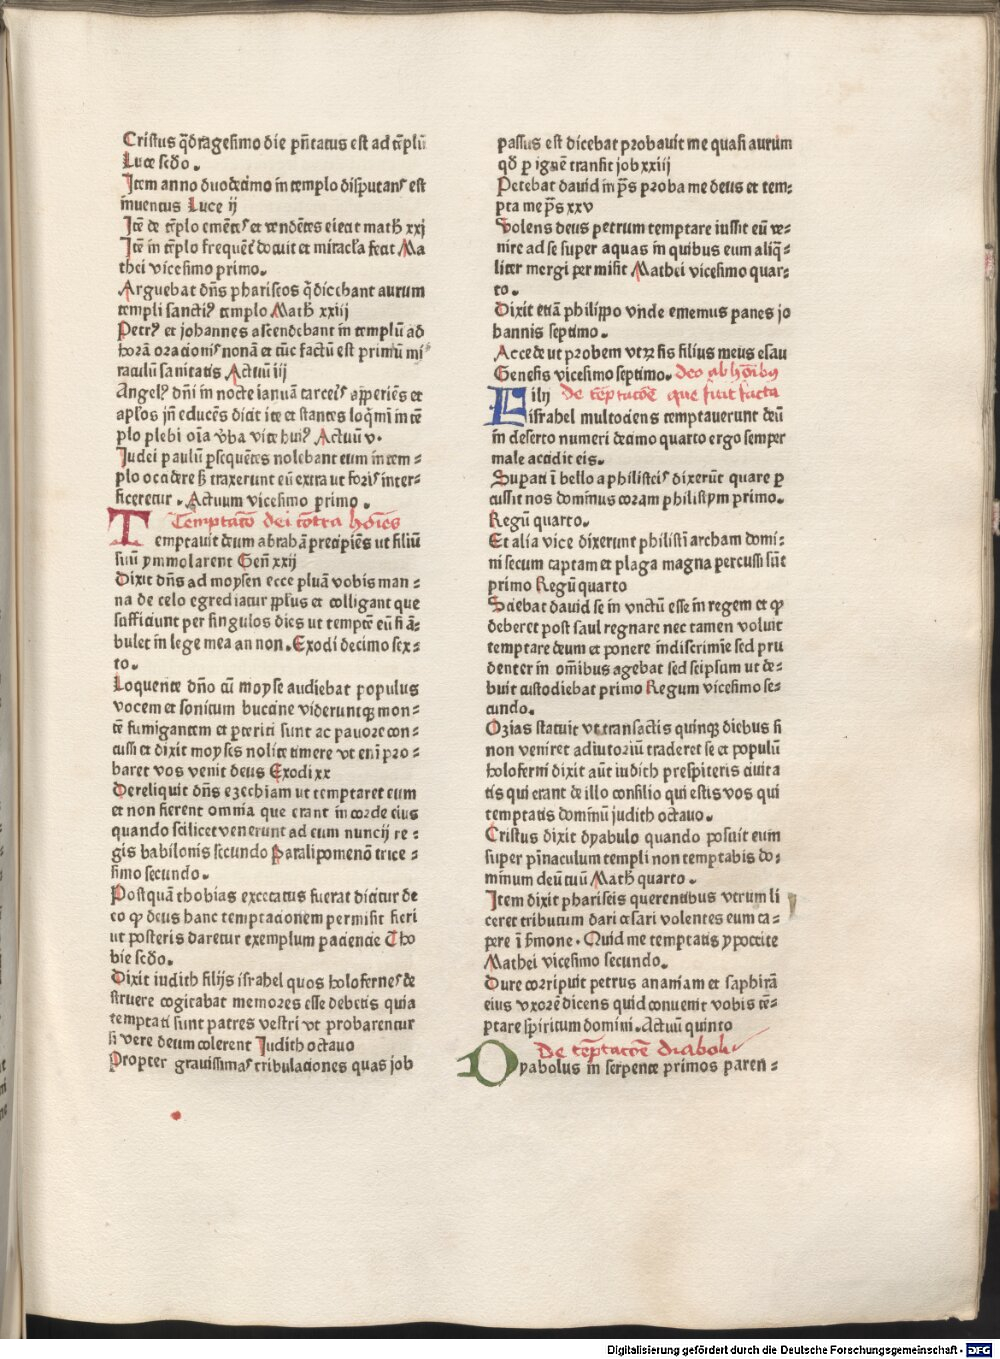 Cristus q̄dragesimo die p̄ntatus est ad tēplū
Luce scḋo.
Item anno duodecimo in templo disputans est
inuentus Luce ij
Itē de tēplo emētes et vendētes eiecit math̄ xxj
Itē in tēplo frequēt̄ docuit et miracl̄a fecit Ma
thei vicesimo primo.
Arguebat dn̄s phariseos q̄ dicebant aurum
templi sanctiꝰ templo Math̄ xxiij
Petrꝰ et johannes ascendebant in templū ad
horā orationis nonā et tūc factū est primū mi
raculū sanitatis Actuū iij
Angelꝰ dn̄i in nocte ianuā carceis apperiēs et
apl̄os in̄ educēs dicit ite et stantes loq̄mī in tē
plo plebi oīa v̄ba vite huiꝰ Actuū v.
Judei paulū p̄sequētes nolebant eum in tem-
plo occidere sꝫ traxerunt eū extra ut foris inter-
ficeretur. Actuum vicesimo primo.
Temptatō dei cōtra hoīes
Temptauit deum abrahā precipiēs ut filiū
suū ymmolarent Geñ xxij
Dixit dn̄s ad moysen ecce pluā vobis man-
na de celo egrediatur pplus et colligant que
sufficiunt per singulos dies ut temptē eū si ā-
bulet in lege mea an non. Exodi decimo sex-
to.
Loquente dn̄o cū moyse audiebat populus
vocem et sonitum buccine videruntqꝫ mon-
tē fumigantem et p̄teriti sunt ac pauore con-
cussi et dixit moyses nolite timere vt enī pro-
baret vos venit deus Exodi xx
Dereliquit dn̄s ezechiam ut temptaret eum
et non fierent omnia que erant in corde eius
quando scilicet venerunt ad eum nuncij re-
gis babilonis secundo Paralipomenō trice-
simo secundo.
Postquā thobias excecatus fuerat dicitur de
eo qꝫ deus hanc temptacionem permisit fieri
ut posteris daretur exemplum paciencie Tho
bie scḋo.
Dixit iudith filijs israhel quos holofernes de
struere cogitabat memores esse debetis quia
temptati sunt patres vestri vt probarentur
si vere deum colerent Judith octauo
Propter grauissimas tribulaciones quas job
passus est dicebat probauit me quasi aurum
qd̄ p ignē transit job xxiij
Petebat dauid in p̄s proba me deus et tem-
pta me p̄s xxv
Volens deus petrum temptare iussit eū ve-
nire ad se super aquas in quibus eum aliq̄-
liter mergi permisit Mathei vicesimo quar-
to.
Dixit etiā philippo vnde ememus panes jo
hannis septimo.
Accede ut probem vtꝝ sis filius meus esau
Genesis vicesimo septimo. deo ab hoībus
De tēptatōe que fuit facta
Filij
israhel multociens temptauerunt deū
in deserto numeri decimo quarto ergo semper
male accidit eis.
Supati ī bello a philisteis dixerūt quare p
cussit nos dominus coram philistijm primo.
Regū quarto.
Et alia vice dixerunt philistī archam domi-
ni secum captam et plaga magna percussi sūt
primo Regū quarto
Sciebat dauid se in vnctū esse in regem et qꝫ
deberet post saul regnare nec tamen voluit
temptare deum et ponere in discrimīe sed pru
denter in om̄ibus agebat sed seipsum ut de-
buit custodiebat primo Regum vicesimo se-
cundo.
Ozias statuit vt transactis quinqꝫ diebus si
non veniret adiutoriū traderet se et populū
holoferni dixit aūt iudith prespiteris ciuita
tis qui erant de illo consilio qui estis vos qui
temptatis dominū judith octauo.
Cristus dixit dyabulo quando posuit eum
super pīnaculum templi non temptabis do-
minum deū tuū Math̄ quarto.
Item dixit phariseis querentibus vtrum li
ceret tributum dari cesari volentes eum ca-
pere ī s̄mone. Quid me temptatis ypocrite
Mathei vicesimo secundo.
Dure corripuit petrus ananiam et saphirā
eius vxorē dicens quid conuenit vobis tē-
ptare spiritum domini. Actuū quinto
De tēptatōe diaboli
Dyabolus in serpente primos paren-
Digitalisierung gefördert durch die Deutsche Forschungsgemeinschaft - DFG